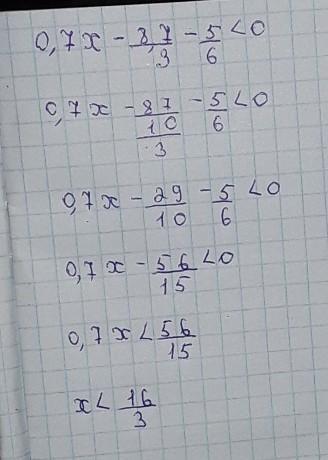 0,7x - 8,7/3 - 5/6 < 0
0,7x - 87/10/3 - 5/6 < 0
0,7x - 29/10 - 5/6 < 0
0,7x - 56/15 < 0
0,7x < 56/15
x < 16/3